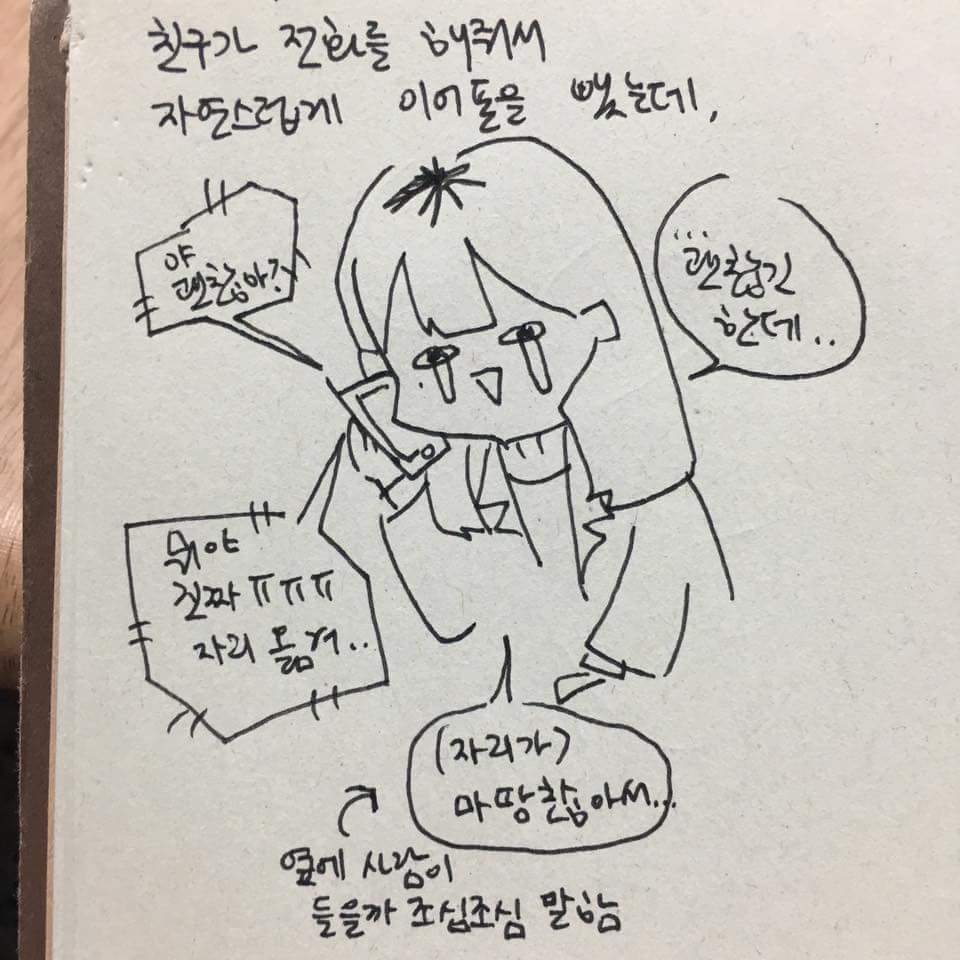 친구가 전화를 해줘서
자연스럽게 이어폰을 뺐는데,
야
괜찮아?
...
괜찮긴
한데..
뭐야
진짜 ㅠㅠㅠ
자리 옮겨..
(자리가)
마땅찮아서...
옆에 사람이
들을까 조심조심 말함